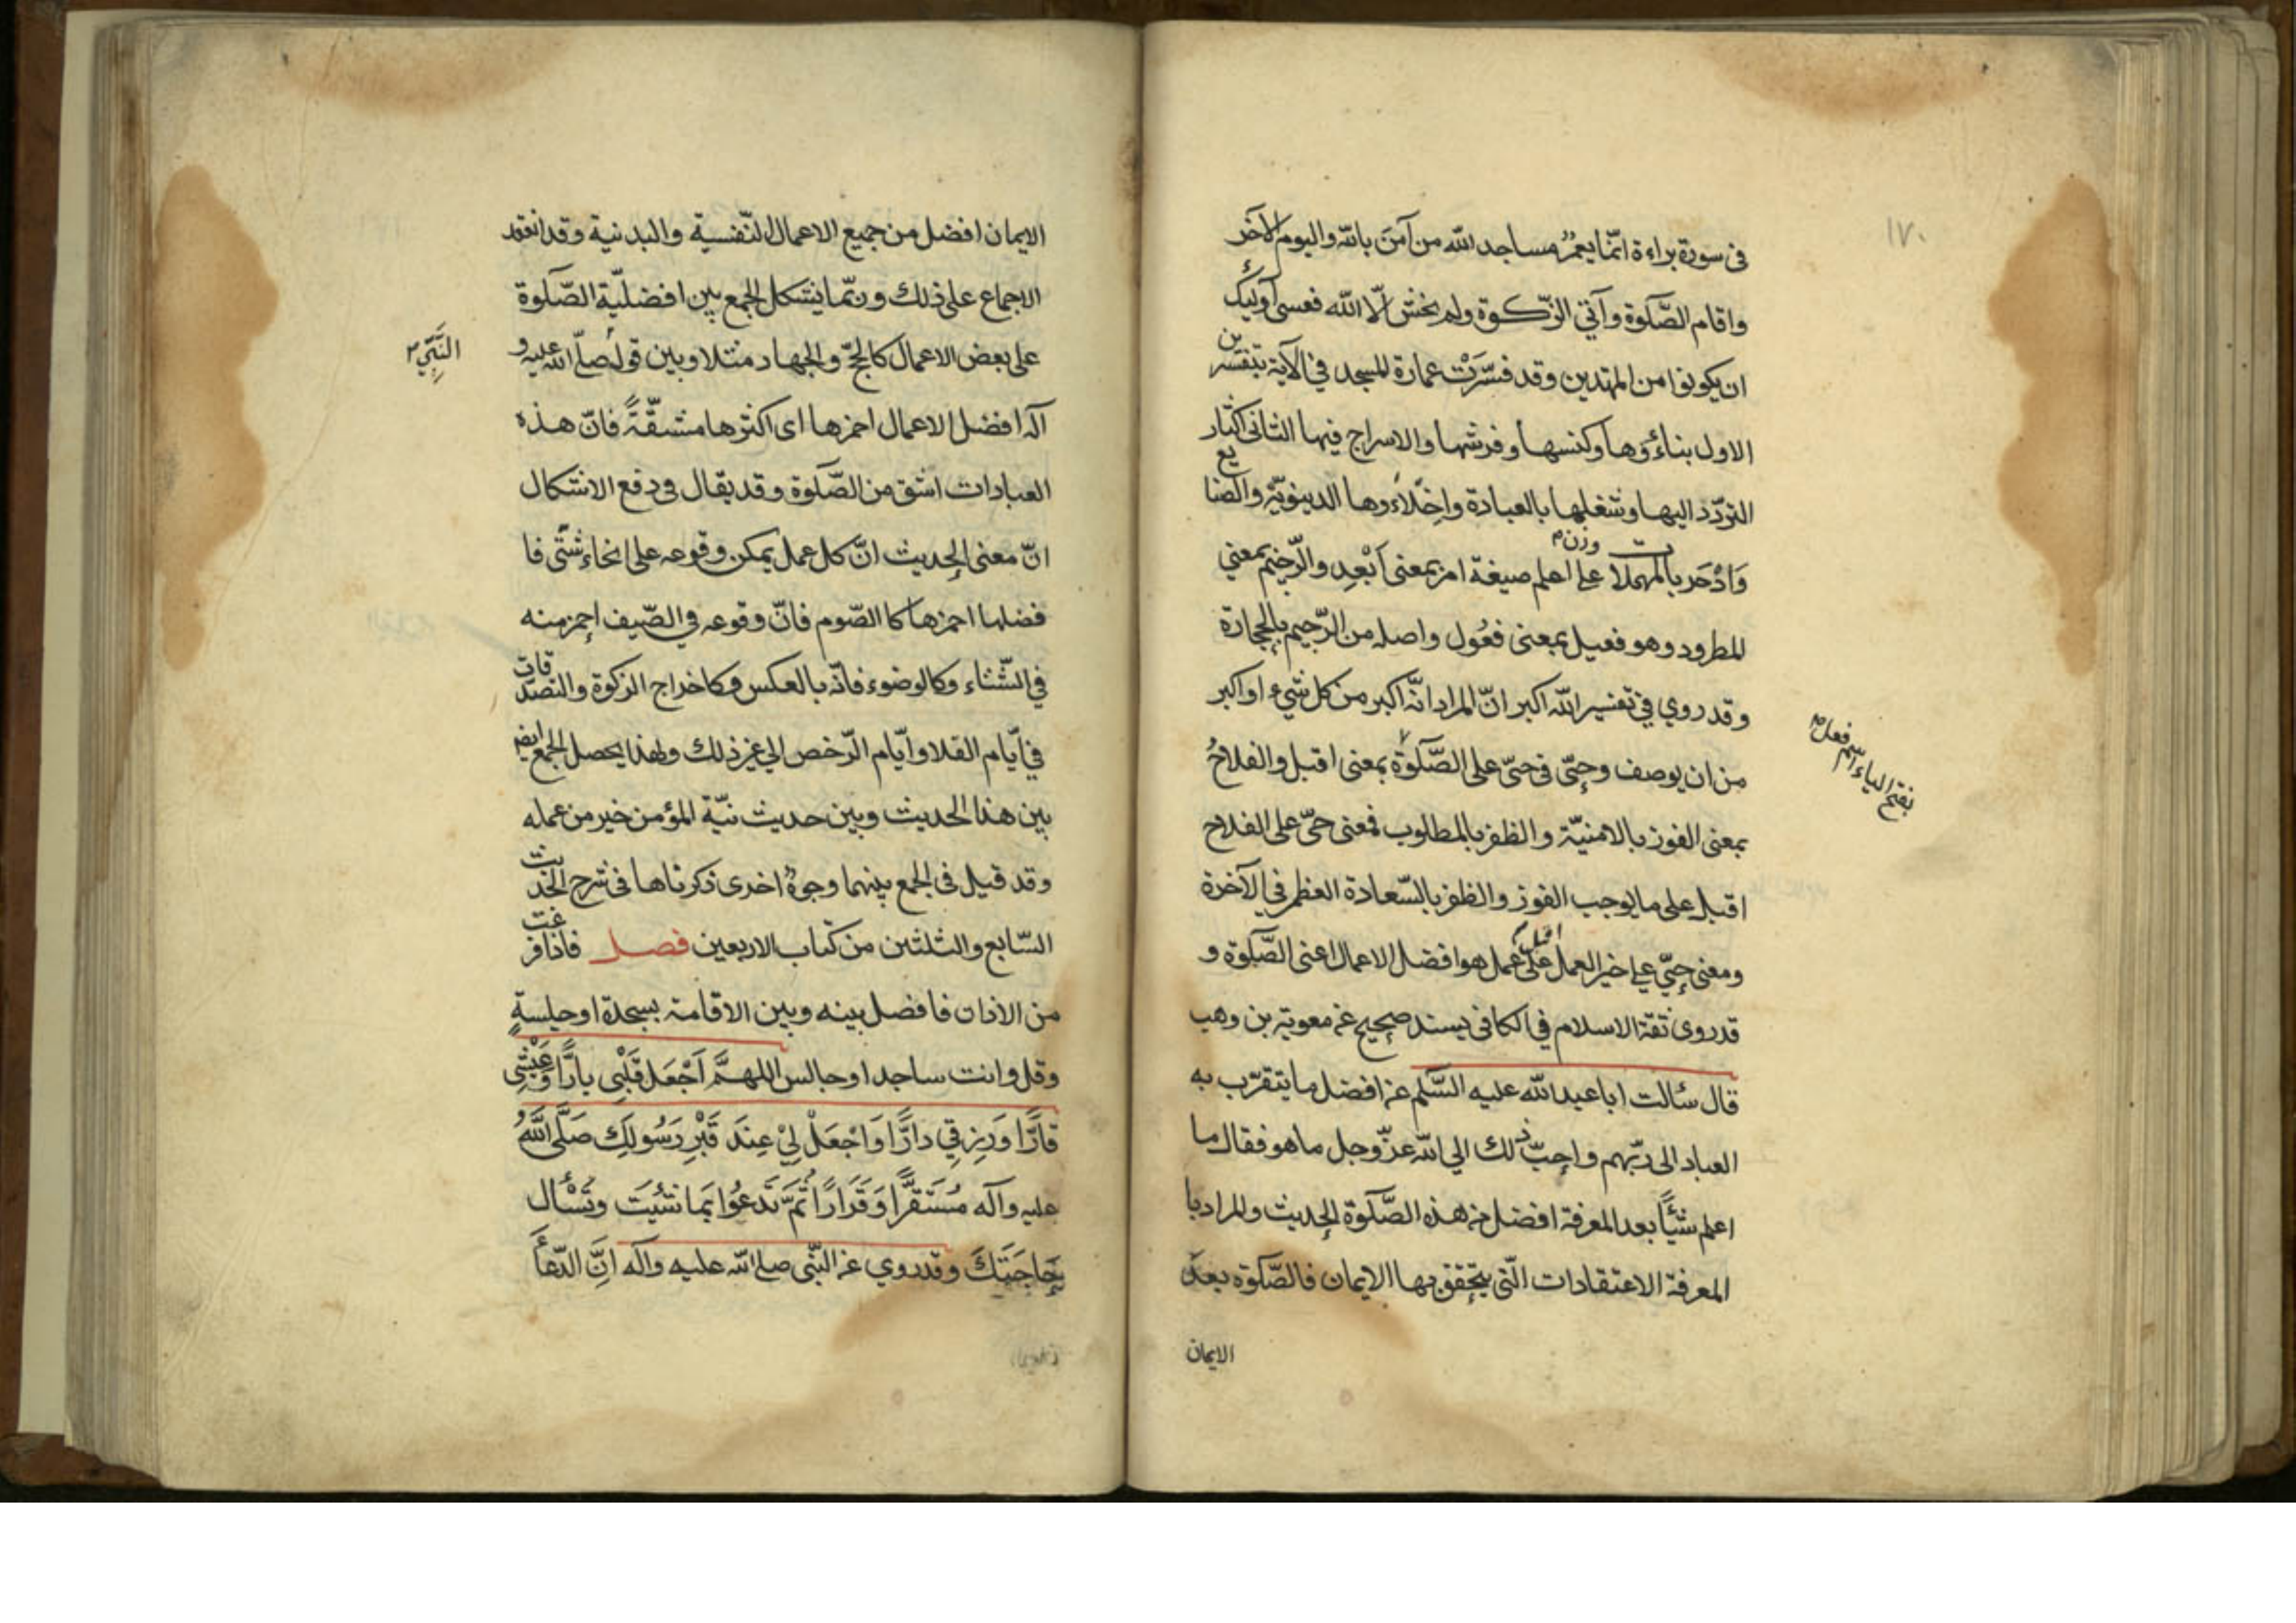 ١٧٠
فى سورة براءة انّما يعمُر مساجد الله من آمَنَ بالله واليوم الآخر
واقام الصَّلوة وآتي الزّكوة ولم يخش الّا الله فعسى اولئِك
ان يكونوا من المهتدين وقد فسّرَتْ عمارة المسجد في الآية بتفسيرين
الاول بناءُوها وكنسها وفرشها والاسراج فيها الثانى اكثار
التردّد اليها وشغلها بالعبادة واخلاءوها الدينويّة والصنايع
وَادْحَر بالمهملات على وزن اعلم صيغة امر بمعنى اَبْعِد والرّجيم بمعني
المطرود وهو فعيل بمعنى فعُول واصله من الرّجيم بالحجارة
وقد روي في تفسير الله اكبر انّ المراد انّه اكبر من كل شيء او اكبر
من ان يوصف وحىّ فى حىّ على الصَّلوة بمعنى اقبل والفلاحُ
بفتح الياء اسم فعل
بمعنى الفوز بالامنيّة والظفر بالمطلوب فمعنى حىّ على الفلاح
اقبل على ما يوجب الفوز والظفر بالسّعادة العظمى في الآخرة
ومعنى حيّ على خير العمل اقبل على عمل هو افضل الاعمال اعنى الصَّلوة و
قد روى ثقة الاسلام في الكافى بسند صحيح عن معوية بن وهب
قال سئالت ابا عبد الله عليه السَّلم عن افضل ما يتقرّب به
العباد الى ربّهم واحبّ ذلك الي الله عزّ وجل ما هو فقال ما
اعلم شيئاً بعد المعرفة افضل من هذه الصَّلوة الحديث والمراد با
المعرفة الاعتقادات الّتي يتحقق بها الايمان فالصَّلوة بعد
الايمان
الايمان افضل من جميع الاعمال النّفسية والبدنية وقد انعقد
الاجماع على ذلك وربّما يشكل الجمع بين افضليّة الصّلوة
على بعض الاعمال كالحجّ والجهاد مثلا وبين قوله صلّى الله عليه و
النَّبِيّ
آله افضل الاعمال احمزها اى اكثرها مشقّةً فانّ هذه
العبادات اشق من الصّلوة وقد يقال فى دفع الاشكال
انّ معنى الحديث انّ كل عمل يمكن وقوعه على انحاء شتّى فا
فضلها احمزها كا الصّوم فانّ وقوعه في الصّيف احمز منه
في الشّتاء وكالوضوء فانّه بالعكس وكاخراج الزكوة والتصدقات
في ايّام القلا وايّام الرّخص الي غير ذلك ولهذا يحصل الجمع ايضا
بين هذا الحديث وبين حديث نيّة المؤمن خير من عمله
وقد قيل فى الجمع بينهما وجوهٌ اخرى ذكرناها فى شرح الحديث
السّابع والثلثين من كتاب الاربعين فصل فاذا فرغت
من الاذان فافضل بينه وبين الاقامة بسجدة او جلسةٍ
وقل وانت ساجد او جالس اللهمَّ اَجْعَل قَلْبى بارًّا وَعَيْشِى
قارًّا وَرِزقِي دارًّا وَاجْعَلْ لِيْ عِندَ قَبْرِ رَسُولِكَ صَلَّى اللَّهُ
عليه وآله مُستَقَرًّا وَقَرَارًا ثُمَّ تَدعُوا بِمَا شئِتَ وتَسْأَل
حَاجَتَكَ وقد روي عن النّبى صلى الله عليه وآله اَنَّ الدّعاَءَ